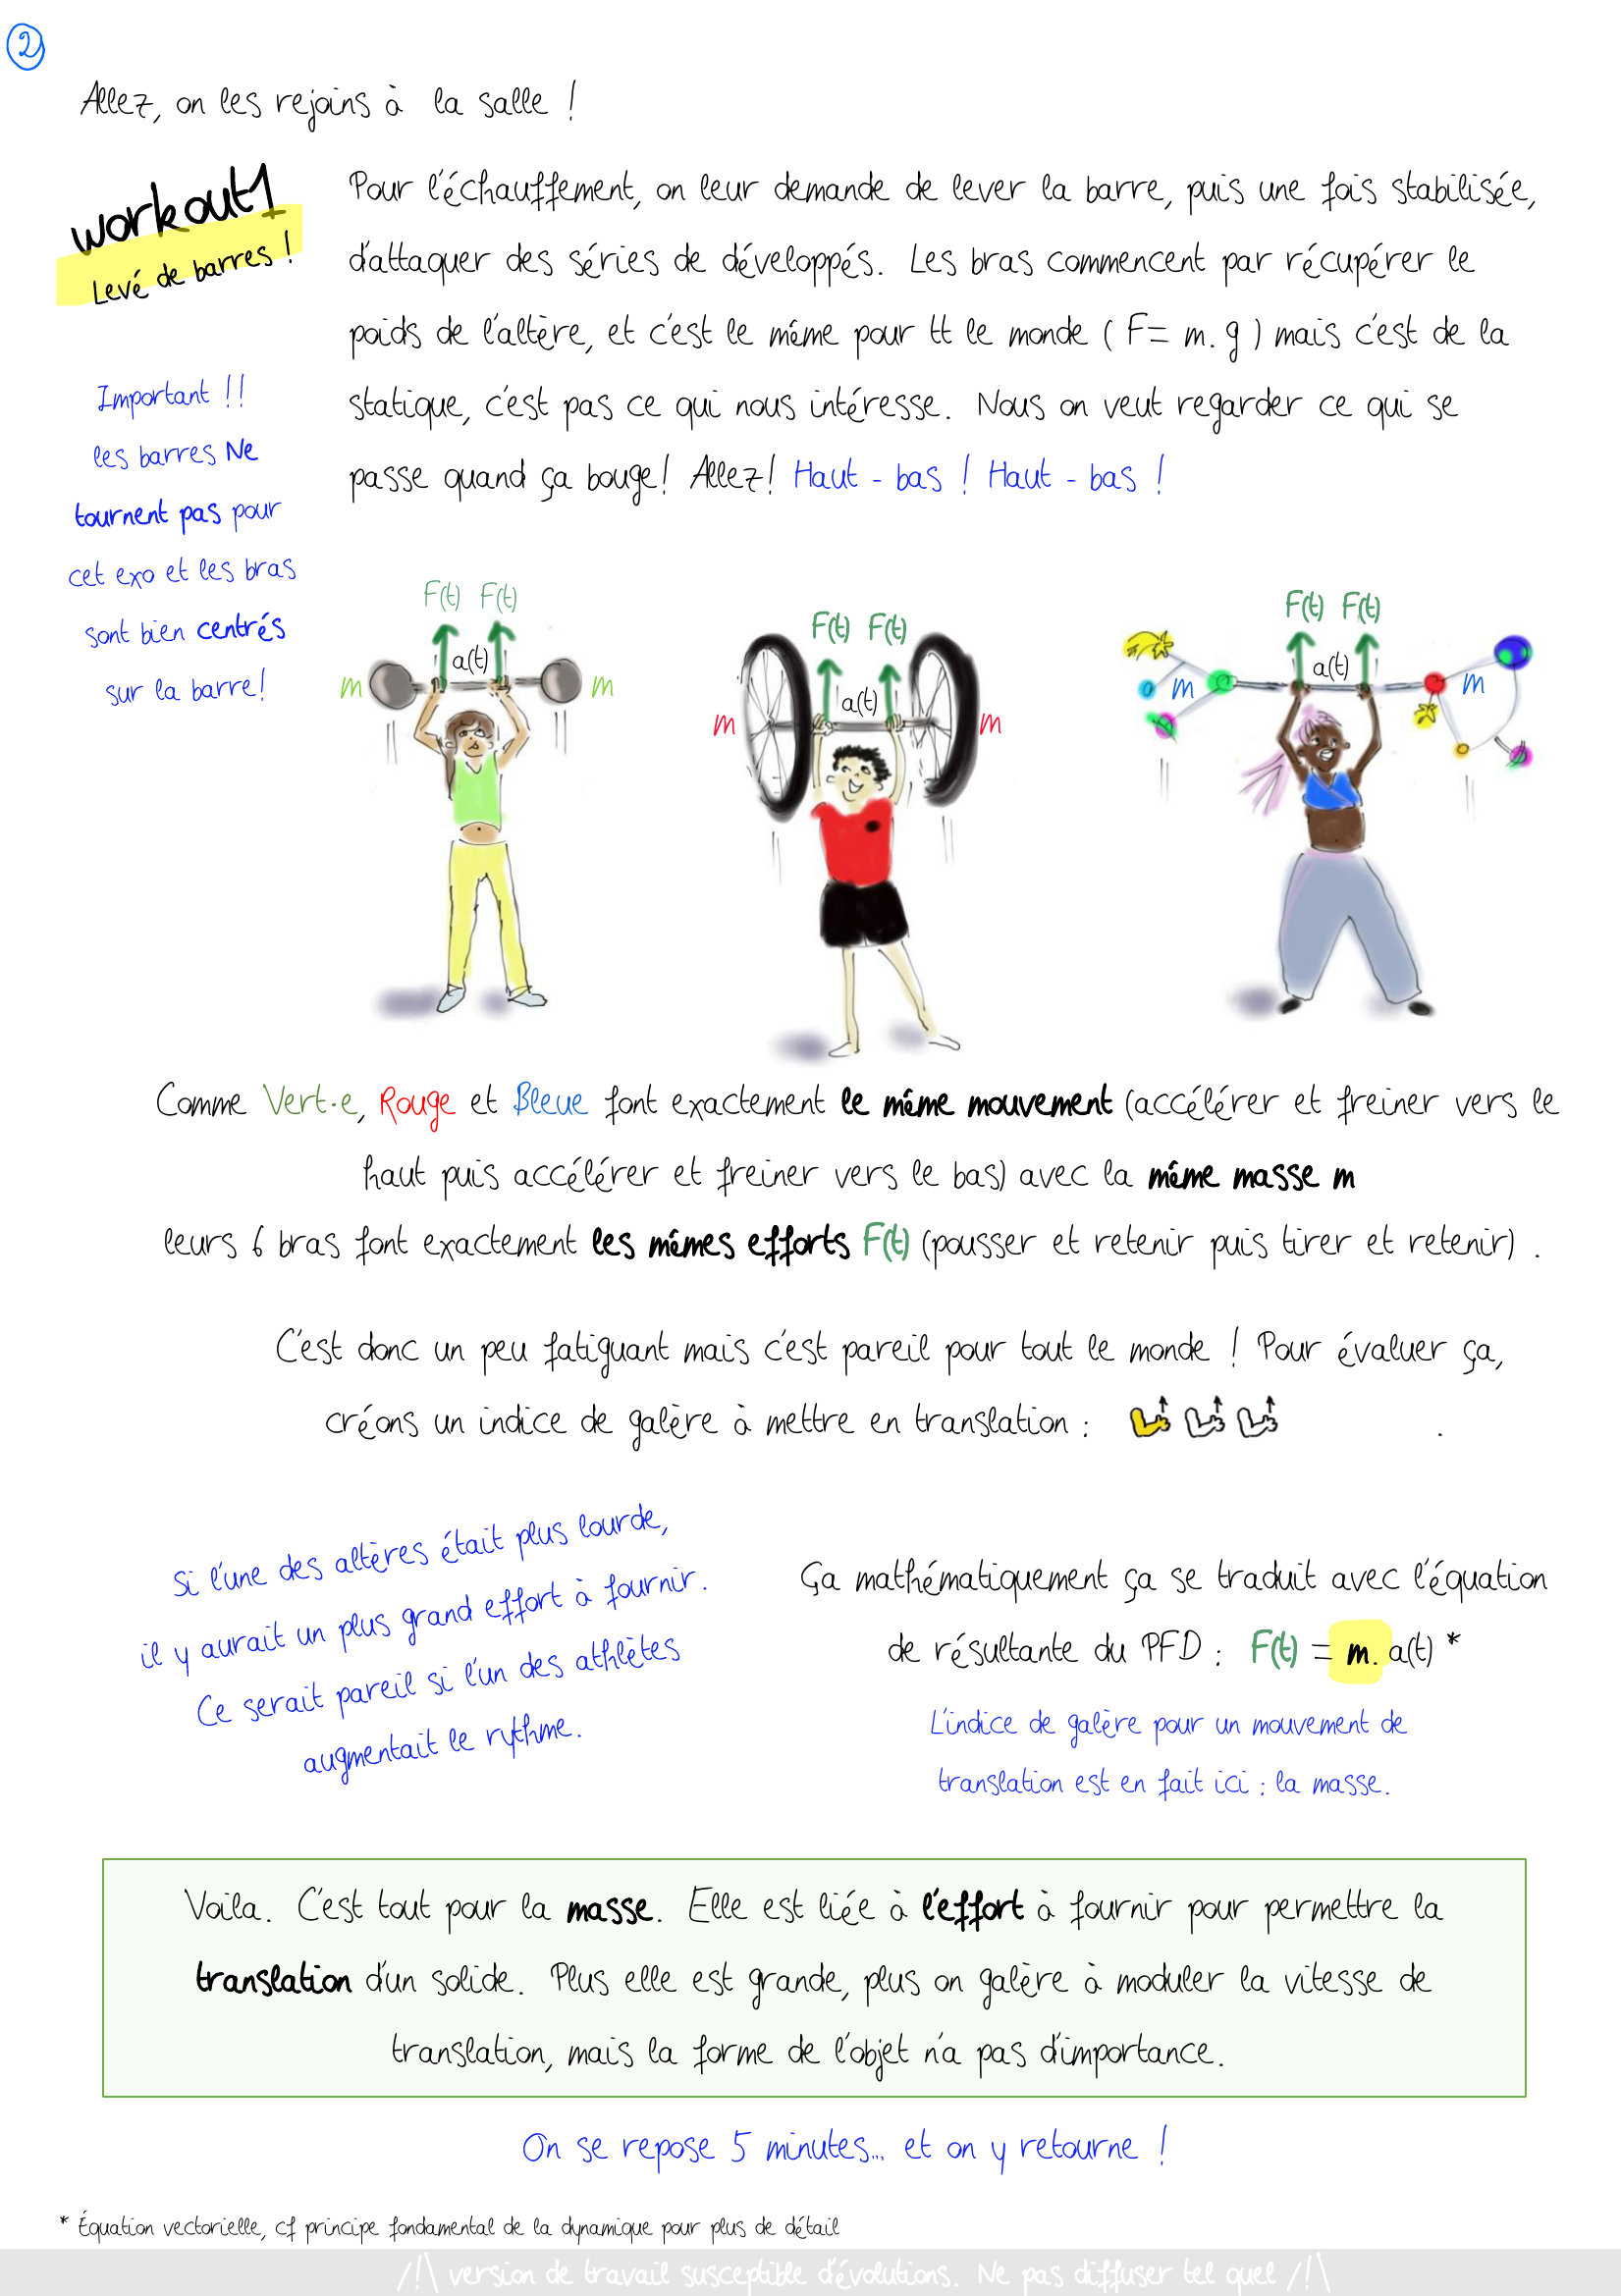 2
Allez, on les rejoins à la salle !
workout1
Levé de barres !
Pour l'échauffement, on leur demande de lever la barre, puis une fois stabilisée,
d'attaquer des séries de développés. Les bras commencent par récupérer le
poids de l'altère, et c'est le même pour tt le monde ( F= m. g ) mais c'est de la
statique, c'est pas ce qui nous intéresse. Nous on veut regarder ce qui se
passe quand ça bouge! Allez! Haut - bas ! Haut - bas !
Important !!
les barres Ne
tournent pas pour
cet exo et les bras
sont bien centrés
sur la barre!
F(t) F(t)
a(t)
m m
F(t) F(t)
a(t)
m m
F(t) F(t)
a(t)
m m
Comme Vert·e, Rouge et Bleue font exactement le même mouvement (accélérer et freiner vers le
haut puis accélérer et freiner vers le bas) avec la même masse m
leurs 6 bras font exactement les mêmes efforts F(t) (pousser et retenir puis tirer et retenir) .
C'est donc un peu fatiguant mais c'est pareil pour tout le monde ! Pour évaluer ça,
créons un indice de galère à mettre en translation : .
Si l'une des altères était plus lourde,
il y aurait un plus grand effort à fournir.
Ce serait pareil si l'un des athlètes
augmentait le rythme.
Ça mathématiquement ça se traduit avec l'équation
de résultante du PFD : F(t) = m. a(t) *
L'indice de galère pour un mouvement de
translation est en fait ici : la masse.
Voila. C'est tout pour la masse. Elle est liée à l'effort à fournir pour permettre la
translation d'un solide. Plus elle est grande, plus on galère à moduler la vitesse de
translation, mais la forme de l'objet n'a pas d'importance.
On se repose 5 minutes... et on y retourne !
* Équation vectorielle, cf principe fondamental de la dynamique pour plus de détail
/!\ version de travail susceptible d'évolutions. Ne pas diffuser tel quel /!\